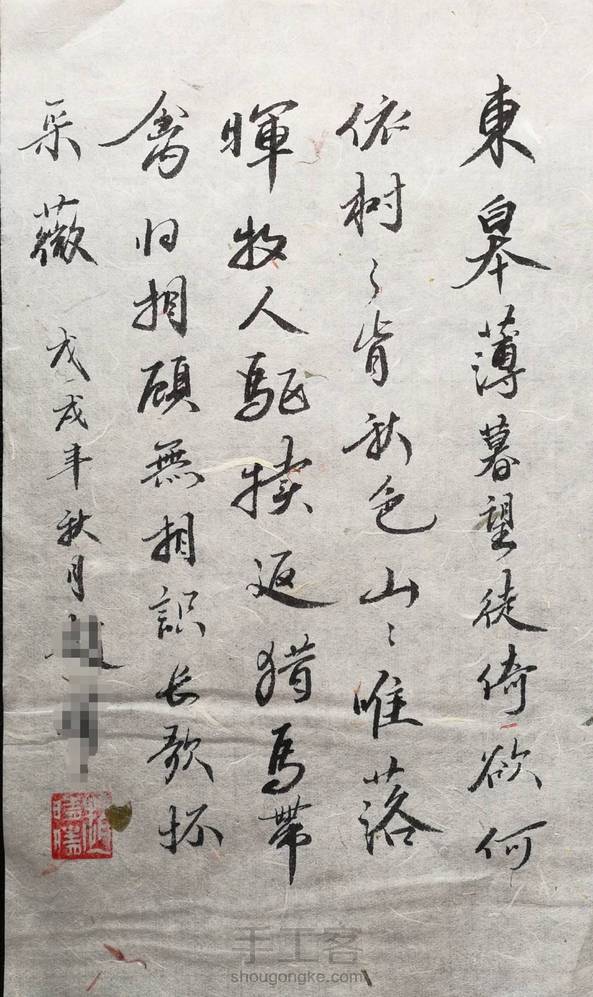 東皋薄暮望徒倚欲何
依树々皆秋色山々唯落
暉牧人驱犊返猎马帶
禽归相顾無相识长歌怀
采薇
戊戌年秋月
手工客
shougongke.com